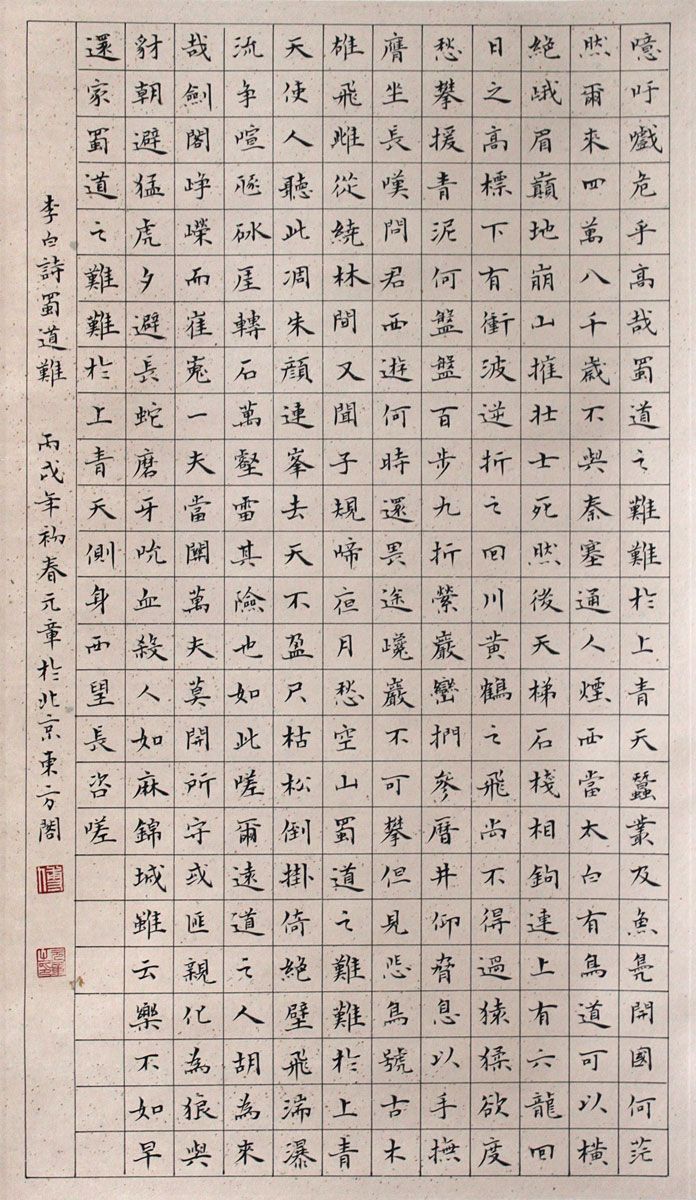 噫吁戲危乎高哉蜀道之難難於上青天蠶叢及魚鳧開國何茫
然爾來四萬八千歲不與秦塞通人煙西當太白有鳥道可以橫
絕峨眉巔地崩山摧壯士死然後天梯石棧相鉤連上有六龍回
日之高標下有衝波逆折之回川黃鶴之飛尚不得過猿猱欲度
愁攀援青泥何盤盤百步九折縈巖巒捫參曆井仰脅息以手撫
膺坐長嘆問君西遊何時還畏途巉巖不可攀但見悲鳥號古木
雄飛雌從繞林間又聞子規啼夜月愁空山蜀道之難難於上青
天使人聽此凋朱顏連峯去天不盈尺枯松倒掛倚絕壁飛湍瀑
流争喧豗砯厓轉石萬壑雷其險也如此嗟爾遠道之人胡為來
哉劍閣崢嶸而崔嵬一夫當關萬夫莫開所守或匪親化為狼與
豺朝避猛虎夕避長蛇磨牙吮血殺人如麻錦城雖云樂不如早
還家蜀道之難難於上青天側身西望長咨嗟
李白詩蜀道難 丙戌年初春元章於北京東方閣